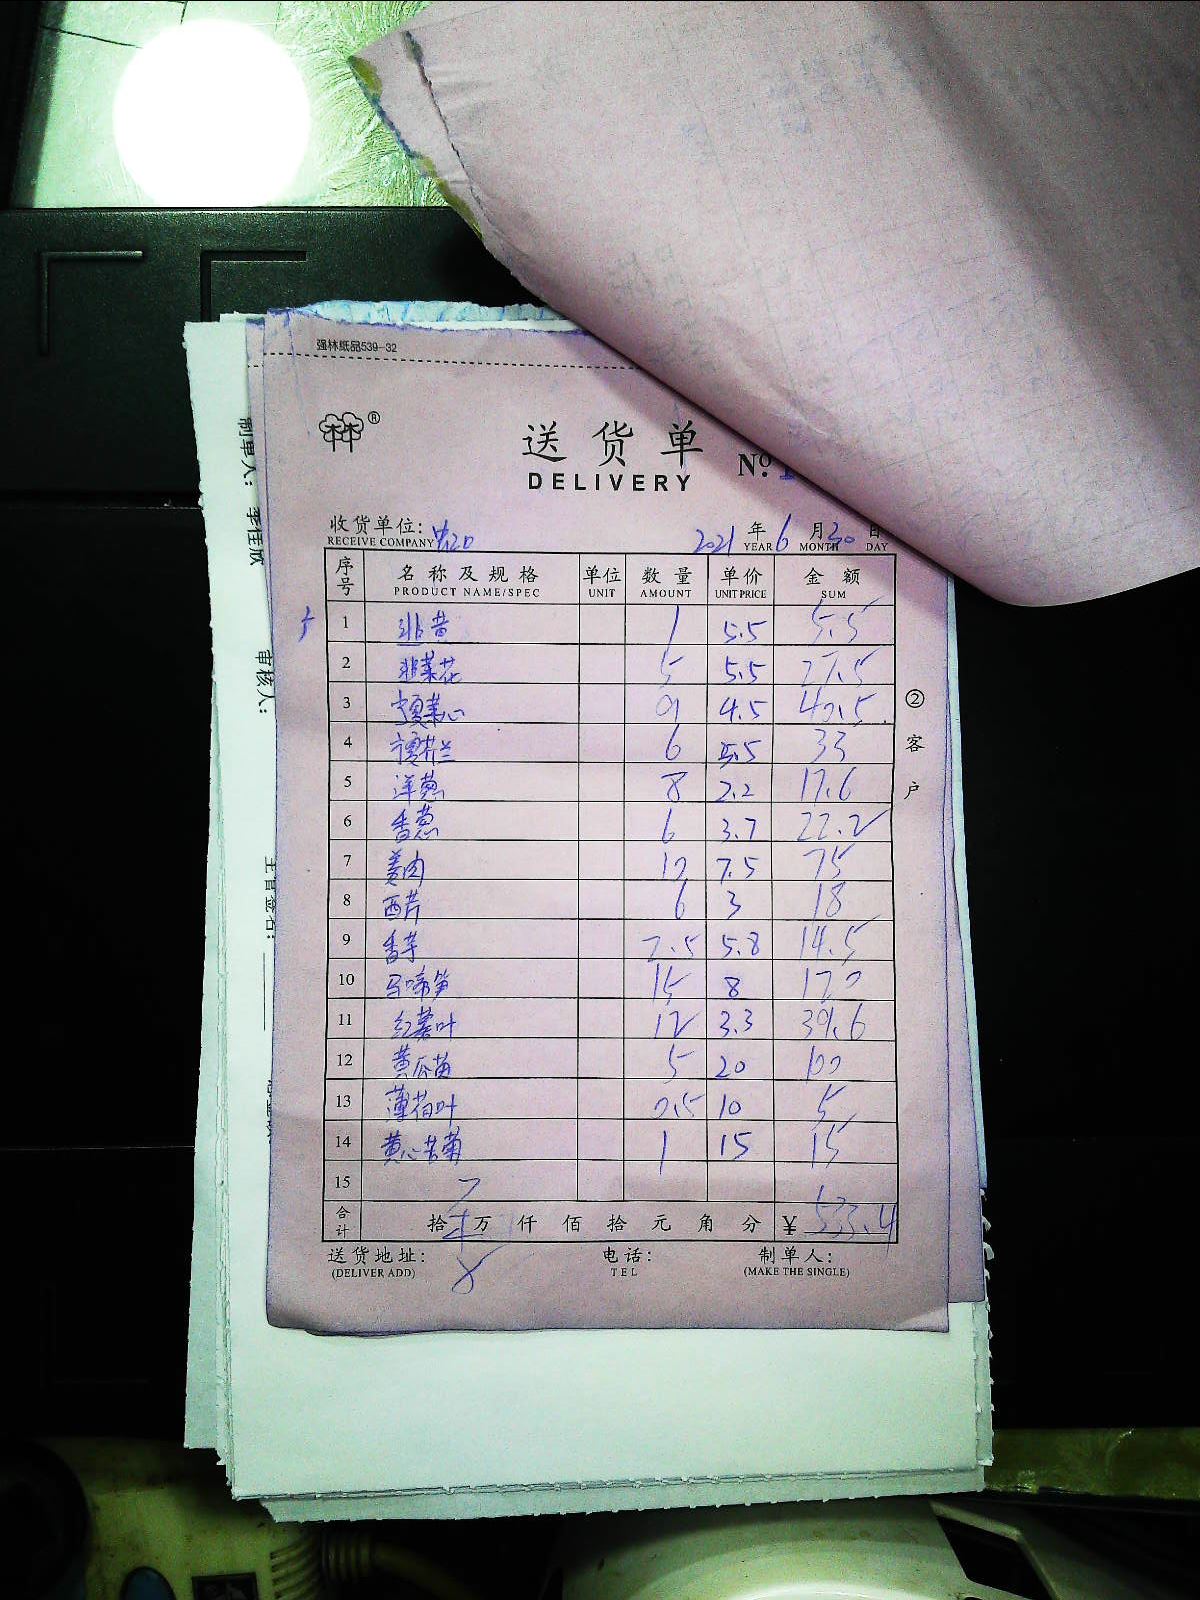 强林纸品539-32
林®
送货单
DELIVERY
№
收货单位: 2021 年 6 月 30 日
RECEIVE COMPANY YEAR MONTH DAY
序号 名称及规格 单位 数量 单价 金额
PRODUCT NAME/SPEC UNIT AMOUNT UNIT PRICE SUM
1 韭黄 1 5.5 5.5
2 韭菜花 5 5.5 27.5
3 菜心 9 4.5 40.5
4 芥兰 6 5.5 33
5 洋葱 8 2.2 17.6
6 香葱 6 3.7 22.2
7 姜肉 10 7.5 75
8 西芹 6 3 18
9 香芋 2.5 5.8 14.5
10 马啼笋 15 8 120
11 红薯叶 12 3.3 39.6
12 黄瓜苗 5 20 100
13 薄荷叶 0.5 10 5
14 黄心苦菊 1 15 15
15
合计 拾 万 仟 佰 拾 元 角 分 ¥ 533.4
送货地址: 电话: 制单人:
(DELIVER ADD) TEL (MAKE THE SINGLE)
②客户
制单人:
审核人:
主管签名: